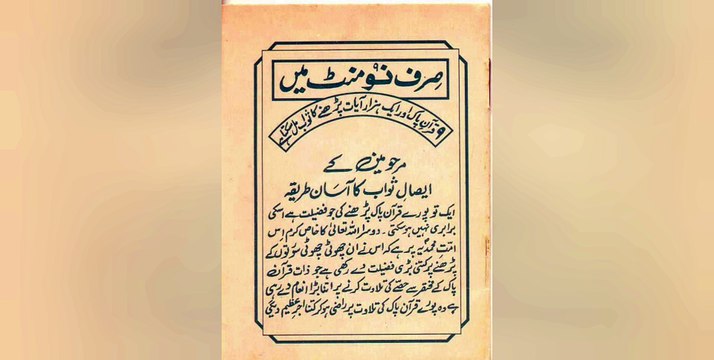 صرف نو منٹ میں
۹ قرآن پاک اور ایک ہزار آیات پڑھنے کا ثواب مل سکتا ہے
مرحومین کے
ایصالِ ثواب کا آسان طریقہ
ایک تو پورے قرآن پاک پڑھنے کی جو فضیلت ہے اسکی
برابری نہیں ہو سکتی ۔ دوسرا اللہ تعالیٰ کا خاص کرم اس
امتِ محمدیہؐ پر ہے کہ اس نے ان چھوٹی چھوٹی سورتوں کے
پڑھنے پر کتنی بڑی فضیلت دے رکھی ہے جو ذات قرآن
پاک کے مختصر سے حصے کی تلاوت کرنے پر اتنا بڑا انعام دے رہی
ہے وہ پورے قرآن پاک کی تلاوت پر راضی ہو کر کتنا اجر عظیم دیگی